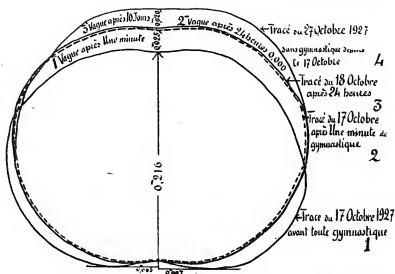 3 Vague après 10 Jours
0,020
2 Vague après 24 heures 0,000
1 Vague après Une minute
0,025
Tracé du 27 Octobre 1927
sans gymnastique depuis
le 17 Octobre
4
Tracé du 18 Octobre
après 24 heures
3
Tracé du 17 Octobre
après Une minute de
gymnastique
2
0,216
Tracé du 17 Octobre 1927
avant toute gymnastique
1
0,003
0,007